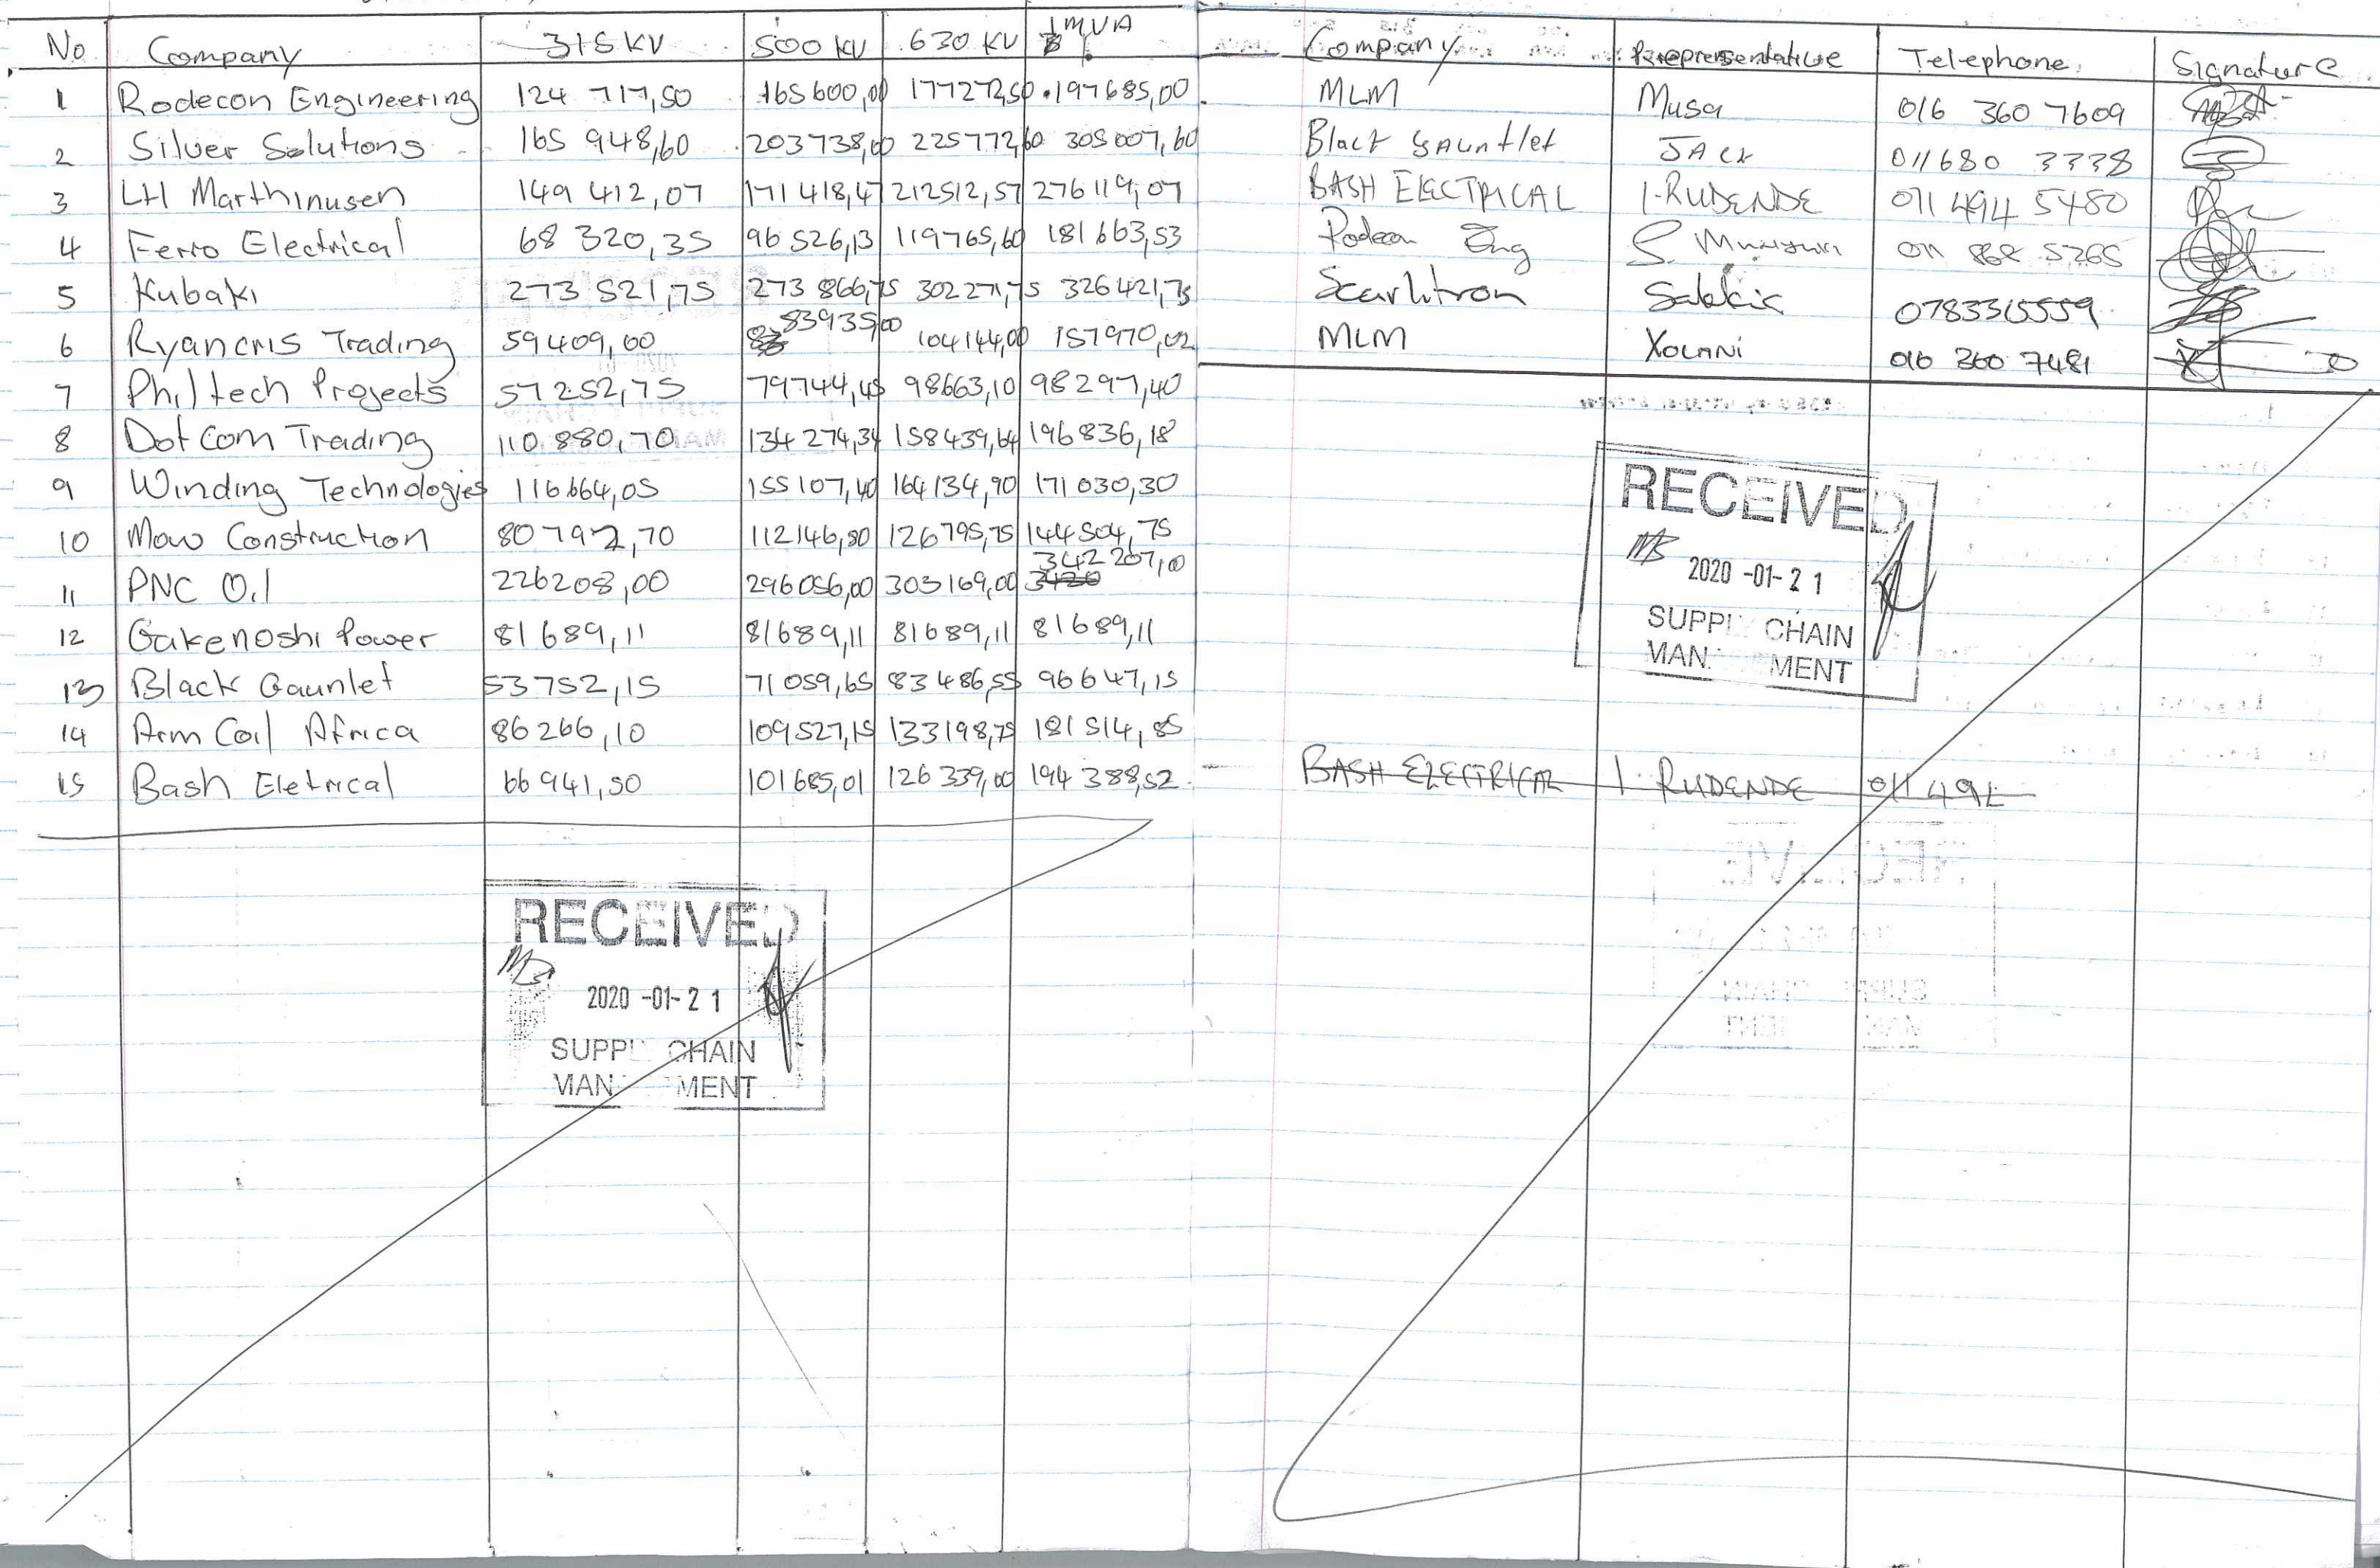 No Company 315 KV 500 KV 630 KV 1 MVA
1 Rodecon Engineering 124 717,50 165 600,00 177272,50 197685,00
2 Silver Solutions 165 948,60 203738,00 225772,60 305007,60
3 LH Marthinusen 149 412,07 171 418,47 212512,57 276119,07
4 Ferro Electrical 68 320,35 96 526,13 119765,60 181 663,53
5 Kubaki 273 521,75 273 866,75 302271,75 326421,75
6 Ryancris Trading 59409,00 83935,00 104144,00 157970,02
7 Philtech Projects 57252,75 79744,45 98663,10 98297,40
8 Dot Com Trading 110 880,70 134 274,34 158439,64 196836,18
9 Winding Technologies 116664,05 155107,40 164134,90 171030,30
10 Mow Construction 80792,70 112146,80 126795,75 144504,75
11 PNC Oil 226208,00 296056,00 303169,00 3420 342 207,00
12 Gakenoshi Power 81689,11 81689,11 81689,11 81689,11
13 Black Gaunlet 53752,15 71059,65 83486,55 96647,15
14 Arm Coil Africa 86266,10 109527,15 133198,75 181514,85
15 Bash Eletrical 66941,50 101685,01 126339,00 194388,52
RECEIVED
2020 -01- 2 1
SUPPL CHAIN
MAN MENT
Company Representative Telephone. Signature
MLM Musa 016 360 7609
Black Gauntlet JACK 011680 3338
BASH ELECTRICAL I.RUDENDE 011 494 5480
Rodecon Eng S. 011 868 5265
Scarlitron 0783315559
MLM XOLANI 016 360 7481
RECEIVED
2020 -01- 2 1
SUPPL CHAIN
MAN MENT
BASH ELECTRICAL I. RUDENDE 011 494